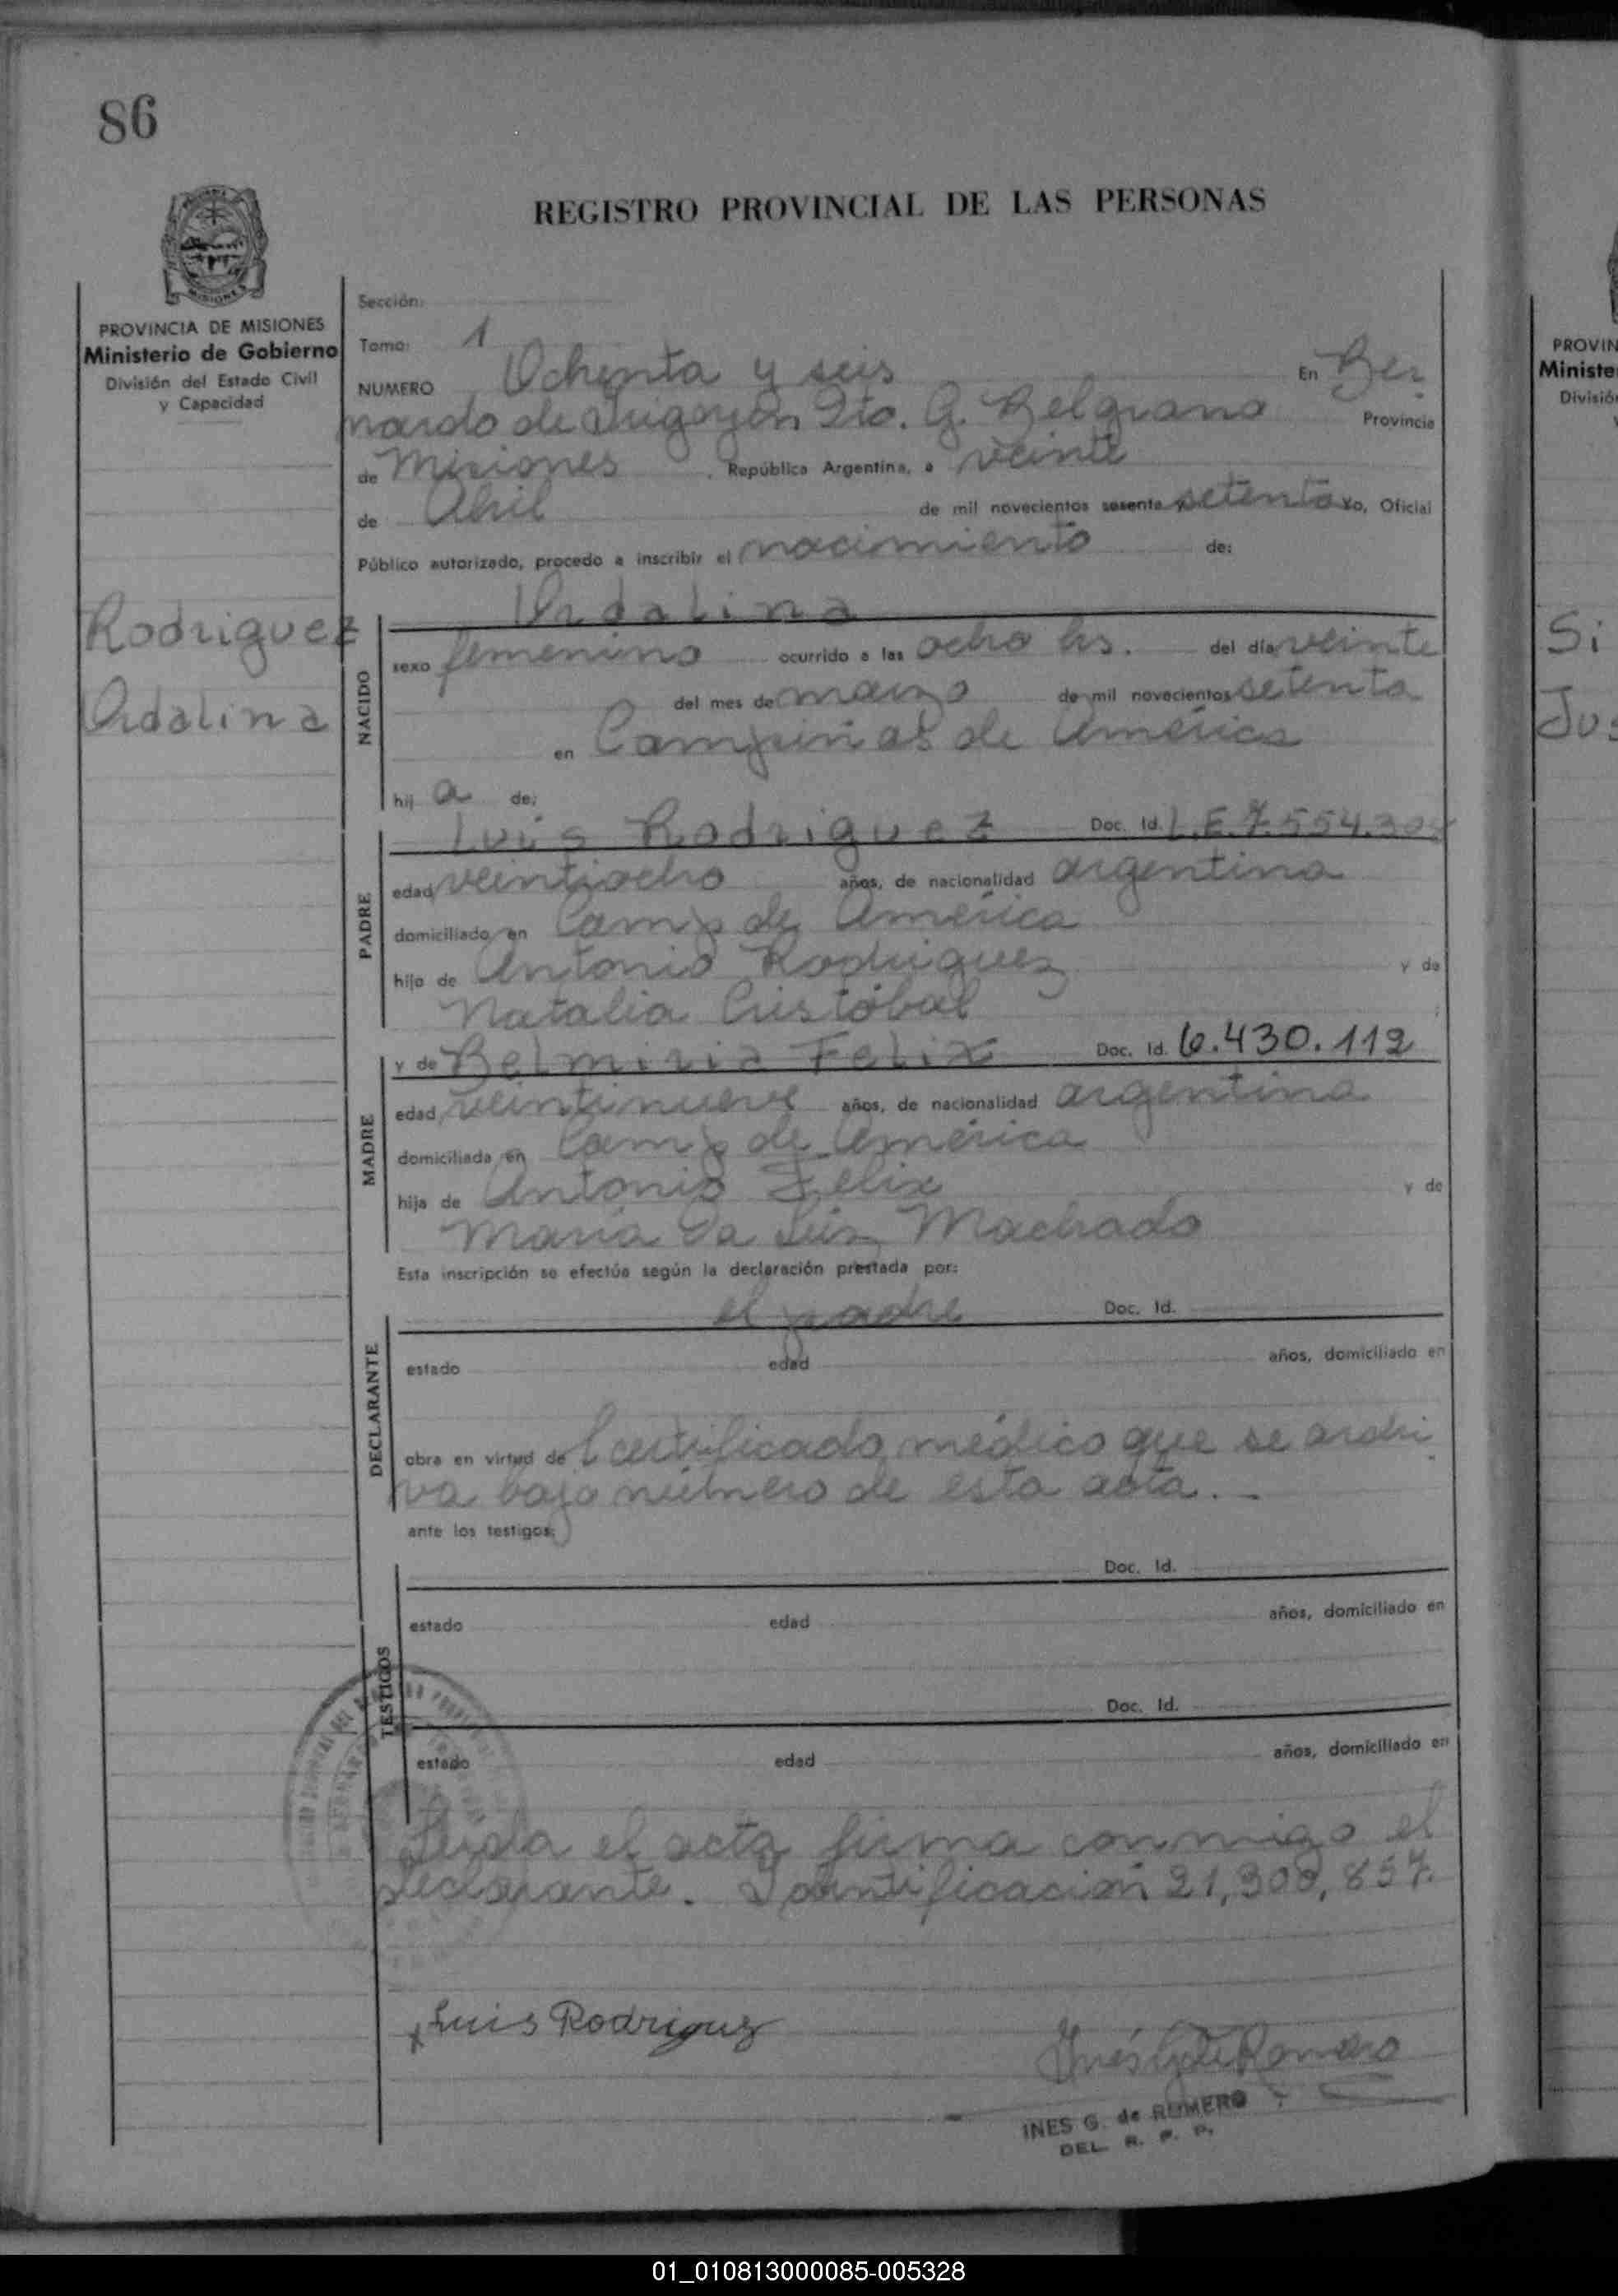 86
REGISTRO PROVINCIAL DE LAS PERSONAS
MISIONES
PROVINCIA DE MISIONES
Ministerio de Gobierno
División del Estado Civil
y Capacidad
Sección:
Tomo: 1
NUMERO Ochenta y seis En Ber
nardo de Irigoyen Dto. G. Belgrano Provincia
de Misiones , República Argentina, a veinte
de Abril de mil novecientos sesenta y setenta Yo, Oficial
Público autorizado, procedo a inscribir el nacimiento de:
Rodriguez
Ordalina
NACIDO
Ordalina
sexo femenino ocurrido a las ocho hs. del día veinte
del mes de marzo de mil novecientos setenta
en Campiñas de América
hij a de:
PADRE
Luis Rodriguez Doc. Id. L.E.7.554.
edad veintiocho años, de nacionalidad argentina
domiciliado en Camp de América
hijo de Antonio Rodriguez y de
Natalia Cristóbal
MADRE
y de Belmiria Felix Doc. Id. 6.430.112
edad veintinueve años, de nacionalidad argentina
domiciliada en Camp de América
hija de Antonio Felix y de
Maria Da Machado
Esta inscripción se efectúa según la declaración prestada por:
DECLARANTE
el padre Doc. Id.
estado edad años, domiciliado en
obra en virtud de l certificado médico que se archi
va bajo número de esta acta.
ante los testigos:
TESTIGOS
Doc. Id.
estado edad años, domiciliado en
Doc. Id.
estado edad años, domiciliado en
Leida el acta firma conmigo el
declarante. Identificación 21,300,857.
x Luis Rodriguez
Inés G de Romero
INES G. de ROMERO
DEL. R. P. P.
PROVIN
Ministe
Divisió
Si
Jus
01_010813000085-005328